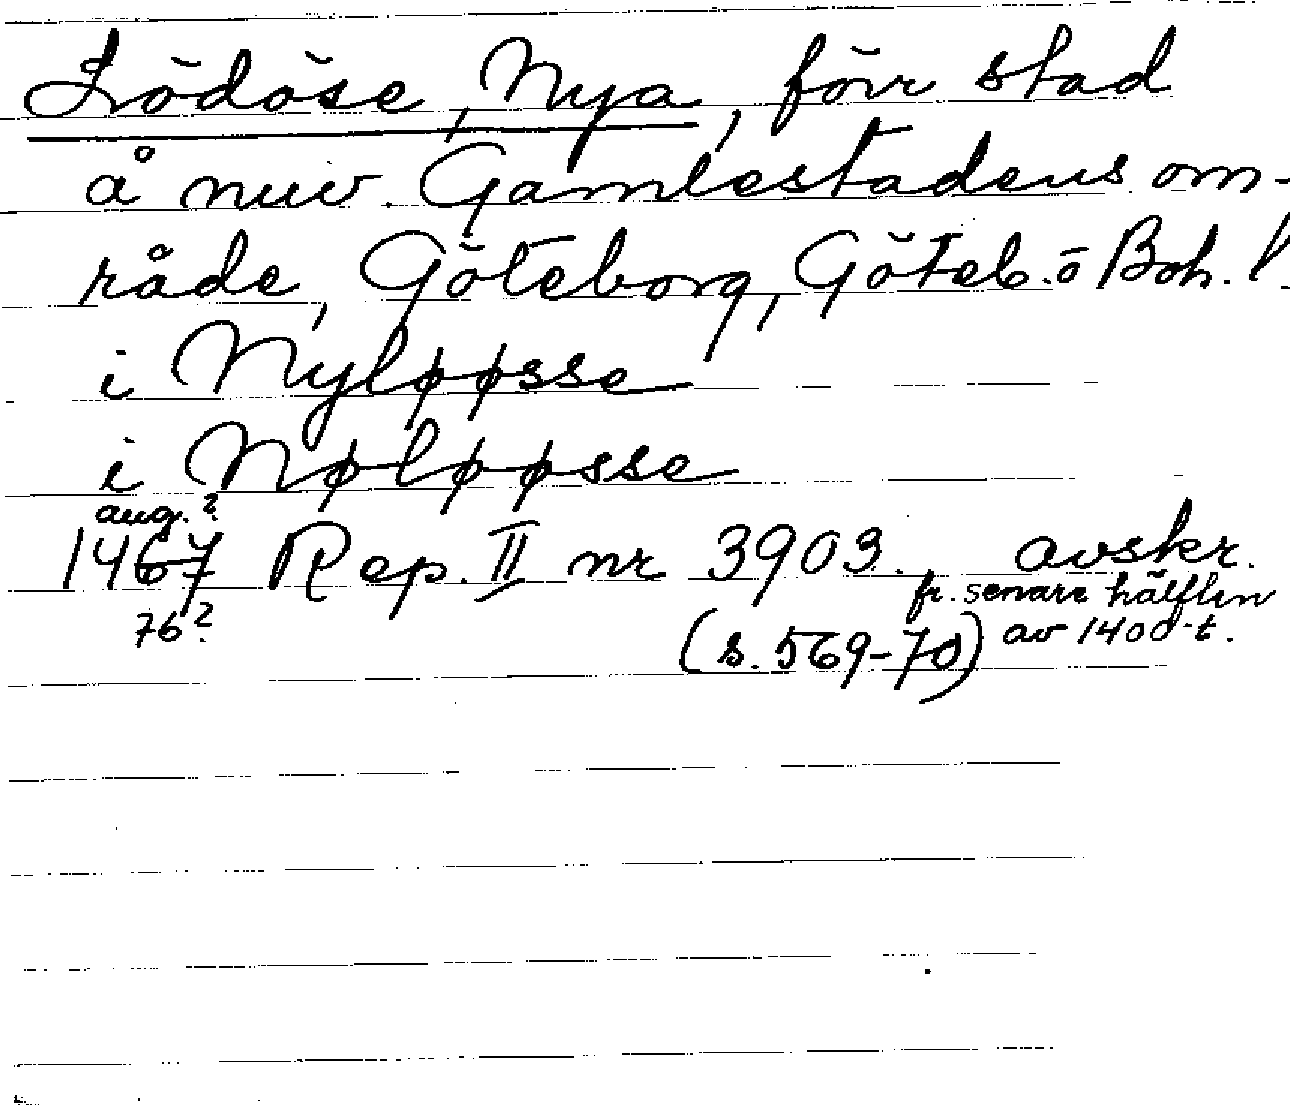 Lödöse, Nya, förr stad
å nuv. Gamlestadens om-
råde, Göteborg, Göteb. o Boh. l.
i Nyløøsse
i Nøløøsse
aug.?
1467 Rep. II nr 3903. avskr.
fr. senare hälften
76? (s. 569-70) av 1400-t.